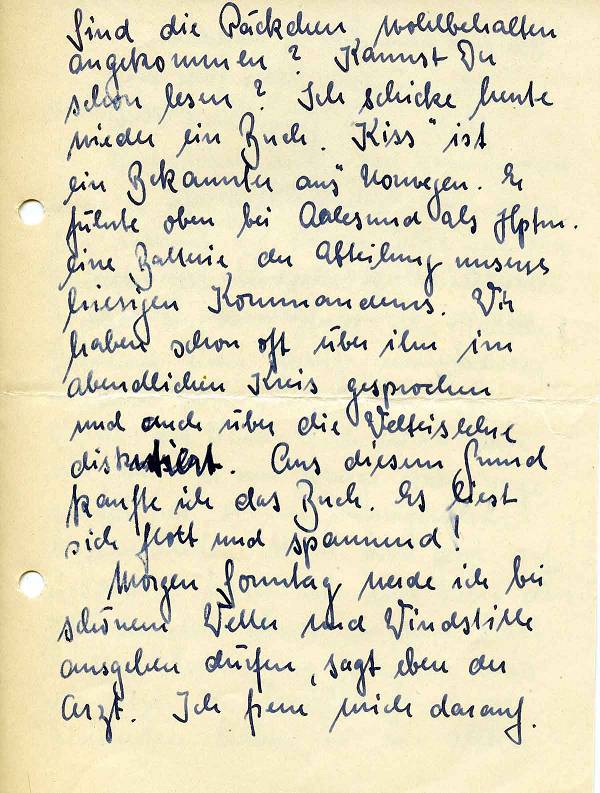 Sind die Päckchen wohlbehalten
angekommen? Kannst Du
schon lesen? Ich schicke heute
wieder ein Buch. „Kiss" ist
ein Bekannter aus Norwegen. Er
führte oben bei Aalesund als Hptm.
eine Batterie der Abteilung unseres
hiesigen Kommandeurs. Wir
haben schon oft über ihn im
abendlichen Kreis gesprochen
und auch über die Welteislehre
diskutiert. Aus diesem Grund
kaufte ich das Buch. Es liest
sich flott und spannend!
Morgen Sonntag werde ich bei
schönem Wetter und Windstille
ausgehen dürfen, sagt eben der
Arzt. Ich freue mich darauf.